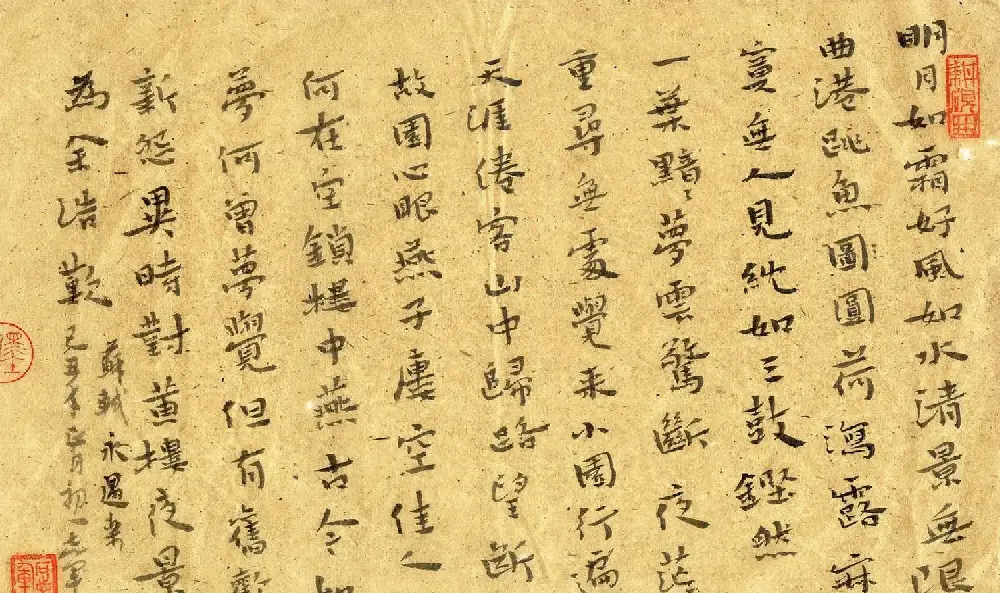 明月如霜好風如水清景無限
曲港跳魚圖圓荷瀉露
寞無人見紞如三鼓鏗然
一葉黯〻夢雲驚斷夜茫
重尋無處覺來小園行遍
天涯倦客山中歸路望斷
故園心眼燕子廔空佳人
何在空鎖樓中燕古今如
夢何曾夢覺但有舊歡
新怨異時對黃樓夜景
為余浩歎
蘇軾永遇樂
己丑年正月初一